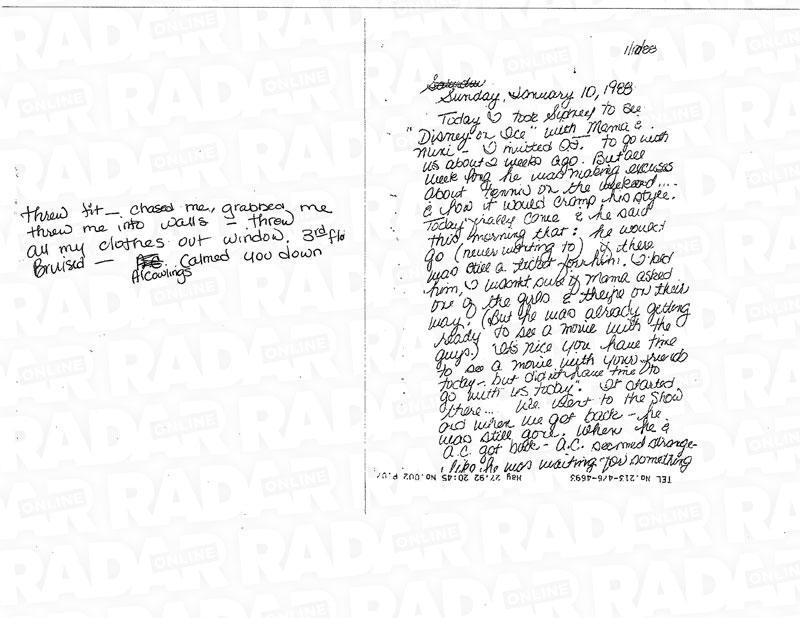 threw fit — chased me, grabbed me
threw me into walls — threw
all my clothes out window. 3rd flo
Bruised — Calmed you down
Al Cowlings
1/10/88
Sunday, January 10, 1988
Today I took Sidney to see
"Disney on Ice" with Mama &
Mini - I invited O.J. to go with
us about 2 weeks ago. But all
week long he was making excuses
about Tennis on the weekend....
& how it would cramp his style.
Today finally came & he said
this morning that: he would
go (never wanting to) if there
was still a ticket for him. I told
him, I wasn't sure if Mama asked
one of the girls & they're on their
way. (But he was already getting
ready to see a movie with the
guys.) "It's nice you have time
to see a movie with your friends
today - but didn't have time to
go with us today". It started
there... We went to the show
and when we got back - he
was still gone. When he &
A.C. got back - A.C. seemed strange -
like he was waiting for something
TEL No. 213-476-4693 May 27,92 20:45 No.002 P.07
RADAR ONLINE